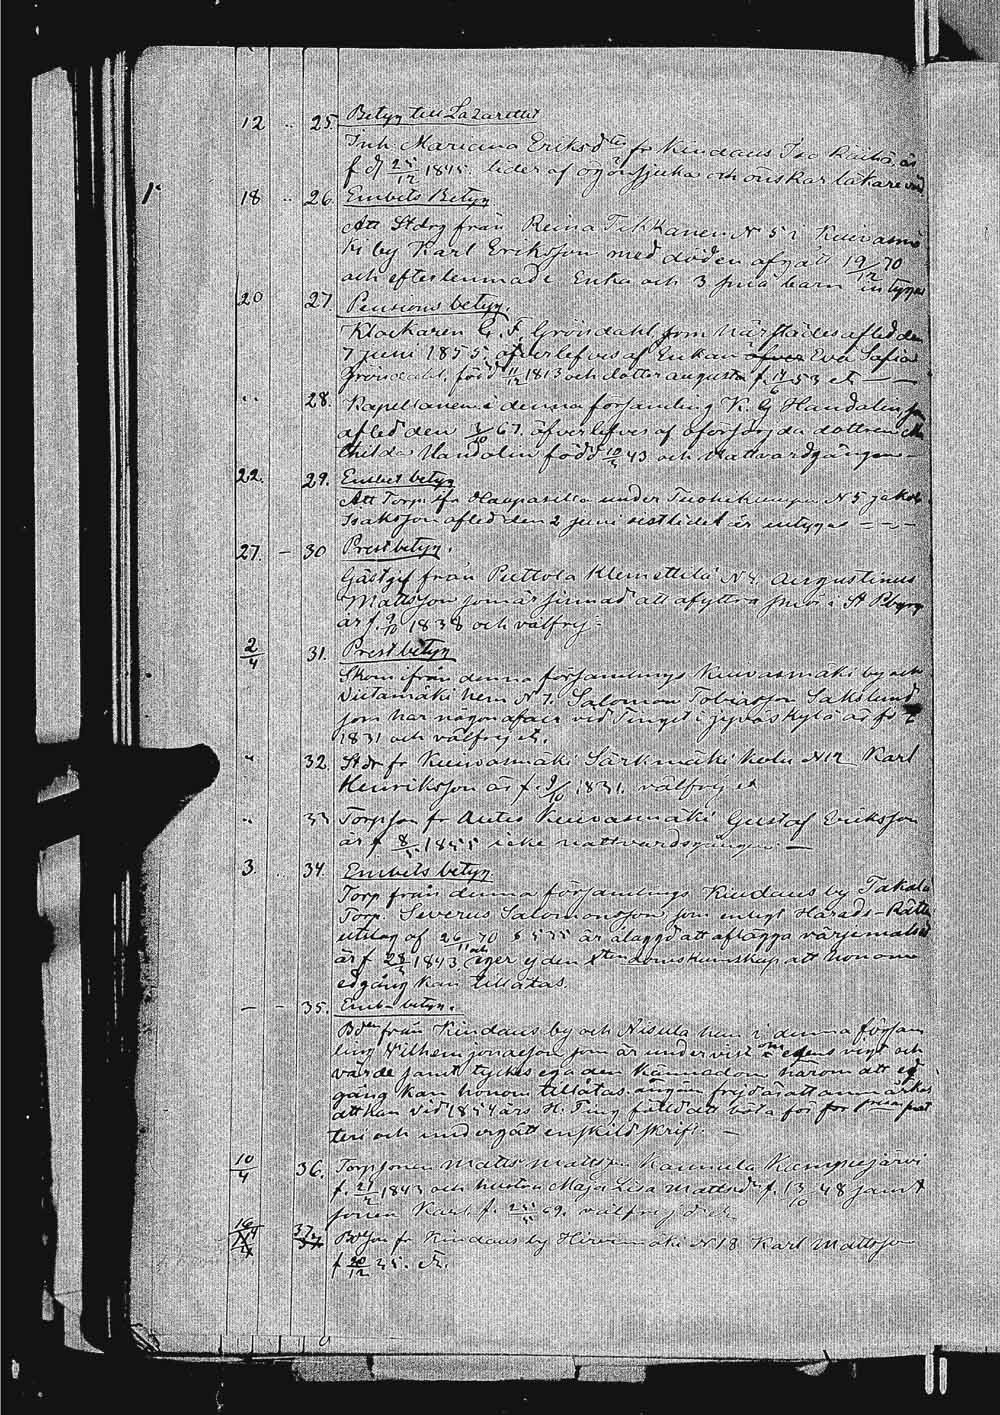 12 " 25. Betyg till Lazarettet
Inh Mariana Eriksdter fr Kindaus Iso Räihä, är
f d 25/12 1845. lider af ögonsjuka och önskar läkarevård
18 " 26. Embets Betyg
Att Stdrg från Reina Tikkanen N 5 i Kuivasmä
ki by Karl Eriksson med döden afgått 19/12 70
och efterlemnade Enka och 3 små barn intygas
20 27. Pensions betyg.
Klockaren G. F. Gröndahl som härstädes afled den
7 juni 1855, öfverlefves af Enkan Eva Sofia
Gröndahl, född 11/12 1813 och dotter augusta f. 53 et — —
" 28. Kapellanen i denna församling K. G Handolin som
afled den 67. öfverlefves af oförsörjda dottren Ma
thilda Handolin född 43 och Nattvardgången —
22. 29. Embet betyg
Att Torp ifr Haapasilta under Tuohikumpu N 5 Jakob
Isaksson afled den 2 juni sistlidet år intygas — — —
27. — 30 Prest betyg.
Gästgif från Puttola Klemettilä N 4. Augustinus
Mattsson som är sinnad att afyttra smör i St Pbrg
är f. 9/10 1838 och välfrej.
2/4 31. Prest betyg
Skom ifrån denna församlings Kuivasmäki by och
Wiitamäki hem N 7. Salomon Tobiasson Sakslund
som har någon afair vid Tinget i Jyväskylä är fö
1831 och välfrej et.
" 32. Stdr fr Kuivasmäki Särkimäki N 12 Karl
Henriksson är f. 9/10 1831. välfrej et
" 33 Torpson fr Autio Kuivasmäki Gustaf Eriksson
är f 1855 icke nattvardsgången. —
3. . 34. Embets betyg.
Torp från denna församlings Kindaus by Takala
Torp. Severus Salomonsson som enligt Härads-Rätts
utslag af 26/11 70 § 535 är ålaggd att aflägga värjemålsed
är f 1843. och eger ej den kristendomskunskap att honom
edgång kan tillåtas.
— — 35. Emb. betyg.
Bden från Kindaus by och Nisula han i denna försam
ling Vilhem Jonasson som är undervist om edens vigt och
värde samt tyckes ega den kännedom härom att ed
gång kan honom tillåtas. ang. frejd är att anmärka
att han vid 1854 års H. Ting fälld att böta för
och undergått enskild skrift. —
10/4 36. Torpsonen Matts Mattsson Kannula Kämpujärvi
f. 1843 och hustru Maja Lisa Mattsdr f. 13/10 48 samt
sonen Karl f. 69. välfrejd d.
37 Bdson fr Kindaus by Hirvimäki N 18 Karl Mattsson
f 20/12 35. Et.